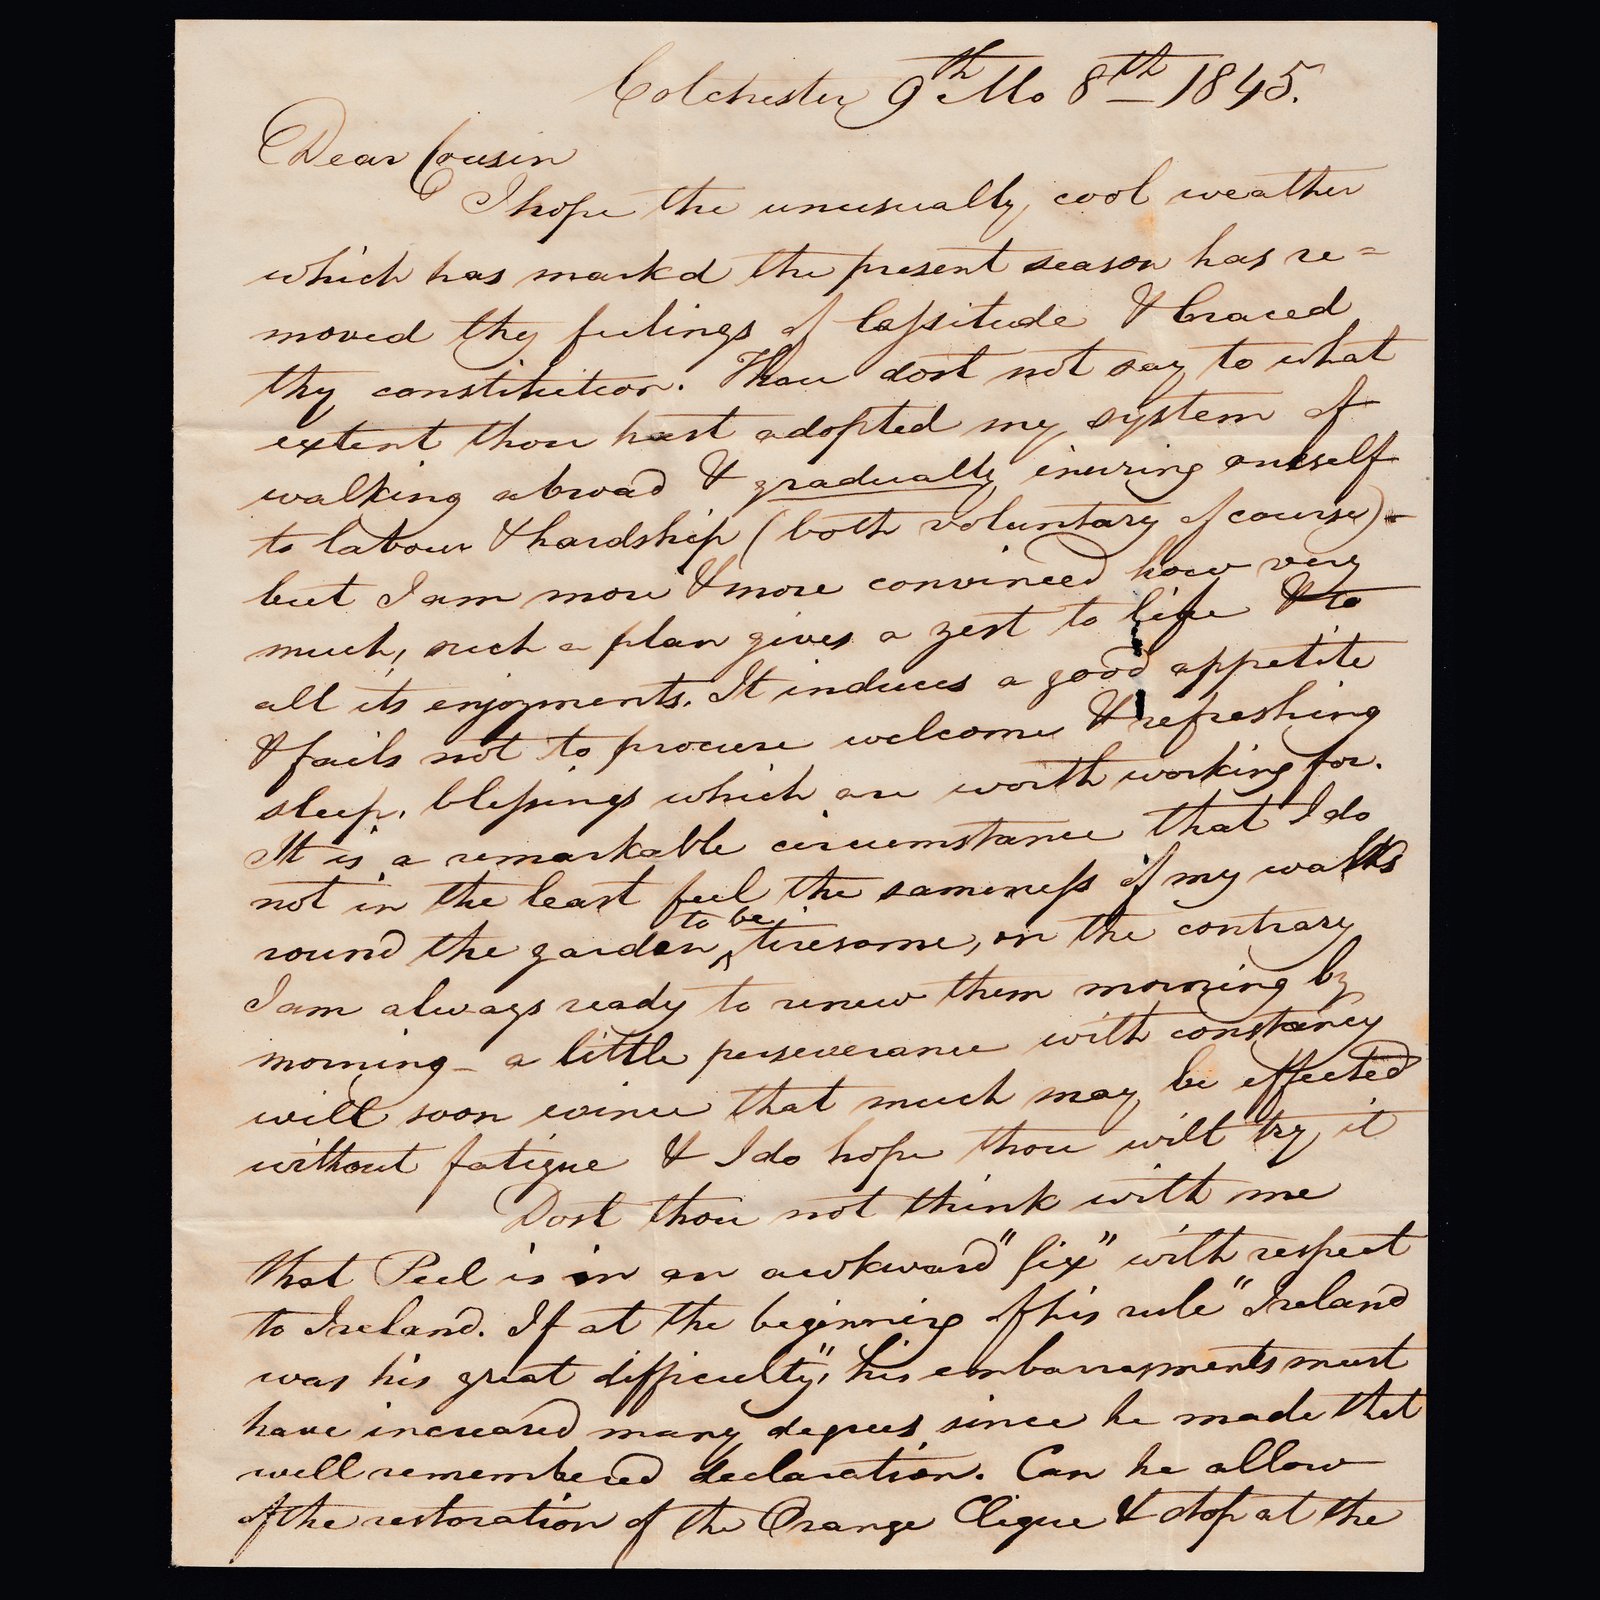 Colchester 9th Mo 8th 1845.
Dear Cousin
I hope the unusually cool weather
which has markd the present season has re=
moved thy feelings of lassitude & braced
thy constitution. Thou dost not say to what
extent thou hast adopted my system of
walking abroad & gradually inuring oneself
to labour & hardship (both voluntary of course) -
but I am more & more convinced how very
much, such a plan gives a zest to life & to
all its enjoyments. It induces a good appetite
& fails not to procure welcome & refreshing
sleep, blessings which are worth working for.
It is a remarkable circumstance that I do
not in the least feel the sameness of my walks
round the garden to be tiresome, on the contrary
I am always ready to renew them morning by
morning - a little perseverance with constancy
will soon evince that much may be effected
without fatigue & I do hope thou wilt try it
Dost thou not think with me
that Peel is in an awkward "fix" with respect
to Ireland. If at the beginning of his rule "Ireland
was his great difficulty", his embarrassments must
have increased many degrees since he made that
well remembered declaration. Can he allow
of the restoration of the Orange Clique & stop at the